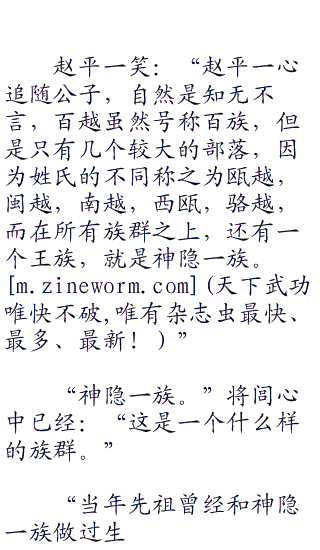 赵平一笑：“赵平一心
追随公子，自然是知无不
言，百越虽然号称百族，但
是只有几个较大的部落，因
为姓氏的不同称之为瓯越，
闽越，南越，西瓯，骆越，
而在所有族群之上，还有一
个王族，就是神隐一族。
[m.zineworm.com](天下武功
唯快不破,唯有杂志虫最快、
最多、最新！)”
“神隐一族。”将闾心
中已经：“这是一个什么样
的族群。”
“当年先祖曾经和神隐
一族做过生